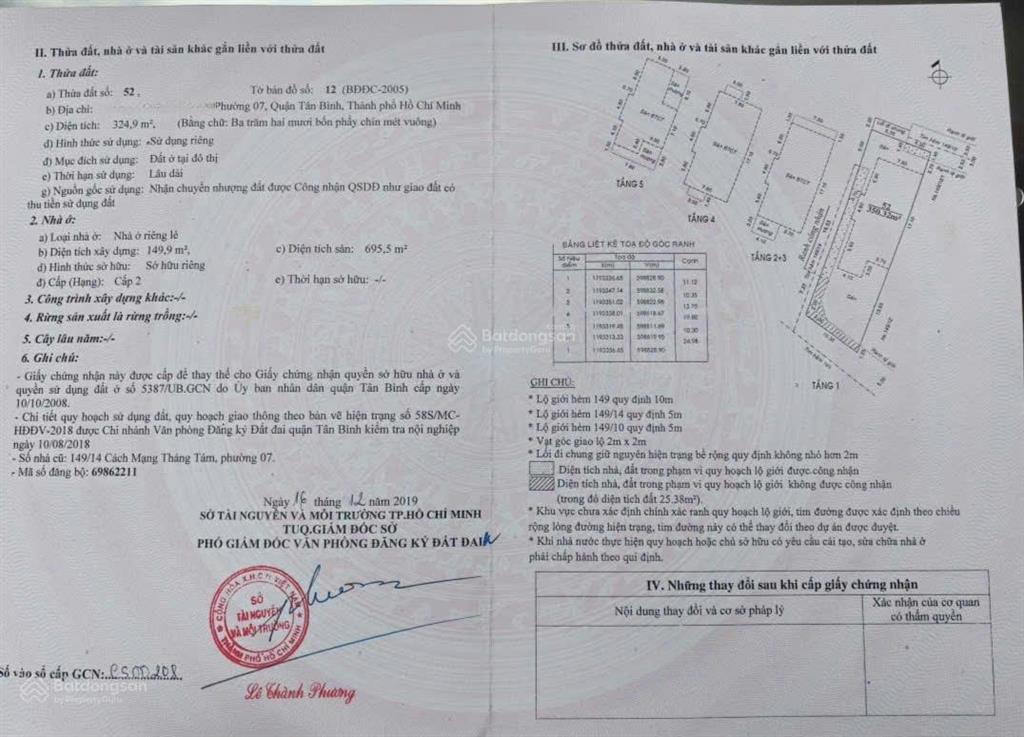 II. Thửa đất, nhà ở và tài sản khác gắn liền với thửa đất
1. Thửa đất:
a) Thửa đất số: 52 , Tờ bản đồ số: 12 (BĐĐC-2005)
b) Địa chỉ: Phường 07, Quận Tân Bình, Thành phố Hồ Chí Minh
c) Diện tích: 324,9 m², (Bằng chữ: Ba trăm hai mươi bốn phẩy chín mét vuông)
d) Hình thức sử dụng: Sử dụng riêng
đ) Mục đích sử dụng: Đất ở tại đô thị
e) Thời hạn sử dụng: Lâu dài
g) Nguồn gốc sử dụng: Nhận chuyển nhượng đất được Công nhận QSDĐ như giao đất có
thu tiền sử dụng đất
2. Nhà ở:
a) Loại nhà ở: Nhà ở riêng lẻ
b) Diện tích xây dựng: 149,9 m², c) Diện tích sàn: 695,5 m²
d) Hình thức sở hữu: Sở hữu riêng
đ) Cấp (Hạng): Cấp 2 e) Thời hạn sở hữu: -/-
3. Công trình xây dựng khác:-/-
4. Rừng sản xuất là rừng trồng:-/-
5. Cây lâu năm:-/-
6. Ghi chú:
- Giấy chứng nhận này được cấp để thay thế cho Giấy chứng nhận quyền sở hữu nhà ở và
quyền sử dụng đất ở số 5387/UB.GCN do Ủy ban nhân dân quận Tân Bình cấp ngày
10/10/2008.
- Chi tiết quy hoạch sử dụng đất, quy hoạch giao thông theo bản vẽ hiện trạng số 58S/MC-
HĐĐV-2018 được Chi nhánh Văn phòng Đăng ký Đất đai quận Tân Bình kiểm tra nội nghiệp
ngày 10/08/2018
- Số nhà cũ: 149/14 Cách Mạng Tháng Tám, phường 07.
- Mã số đăng bộ: 69862211
Ngày 16 tháng 12 năm 2019
SỞ TÀI NGUYÊN VÀ MÔI TRƯỜNG TP.HỒ CHÍ MINH
TUQ.GIÁM ĐỐC SỞ
PHÓ GIÁM ĐỐC VĂN PHÒNG ĐĂNG KÝ ĐẤT ĐAI
CỘNG HÒA X.H.C.N VIỆT NAM
SỞ
TÀI NGUYÊN
VÀ MÔI TRƯỜNG
THÀNH PHỐ HỒ CHÍ MINH
Lê Thành Phương
Số vào sổ cấp GCN:
Batdongsan
by PropertyGuru
III. Sơ đồ thửa đất, nhà ở và tài sản khác gắn liền với thửa đất
TẦNG 5
TẦNG 4
TẦNG 2+3
TẦNG 1
Sàn BTCT
Sàn BTCT
Sàn BTCT
Ranh chứng nhận
52
BẢNG LIỆT KÊ TỌA ĐỘ GÓC RANH
Số hiệu điểm Tọa độ Cạnh
X(m) Y(m)
Batdongsan
by PropertyGuru
GHI CHÚ:
* Lộ giới hẻm 149 quy định 10m
* Lộ giới hẻm 149/14 quy định 5m
* Lộ giới hẻm 149/10 quy định 5m
* Vạt góc giao lộ 2m x 2m
* Lối đi chung giữ nguyên hiện trạng bề rộng quy định không nhỏ hơn 2m
Diện tích nhà, đất trong phạm vi quy hoạch lộ giới được công nhận
Diện tích nhà, đất trong phạm vi quy hoạch lộ giới không được công nhận
(trong đó diện tích đất 25.38m²).
* Khu vực chưa xác định chính xác ranh quy hoạch lộ giới, tim đường được xác định theo chiều
rộng lòng đường hiện trạng, tim đường này có thể thay đổi theo dự án được duyệt.
* Khi nhà nước thực hiện quy hoạch hoặc chủ sở hữu có yêu cầu cải tạo, sửa chữa nhà ở
phải chấp hành theo qui định.
IV. Những thay đổi sau khi cấp giấy chứng nhận
Nội dung thay đổi và cơ sở pháp lý
Xác nhận của cơ quan
có thẩm quyền